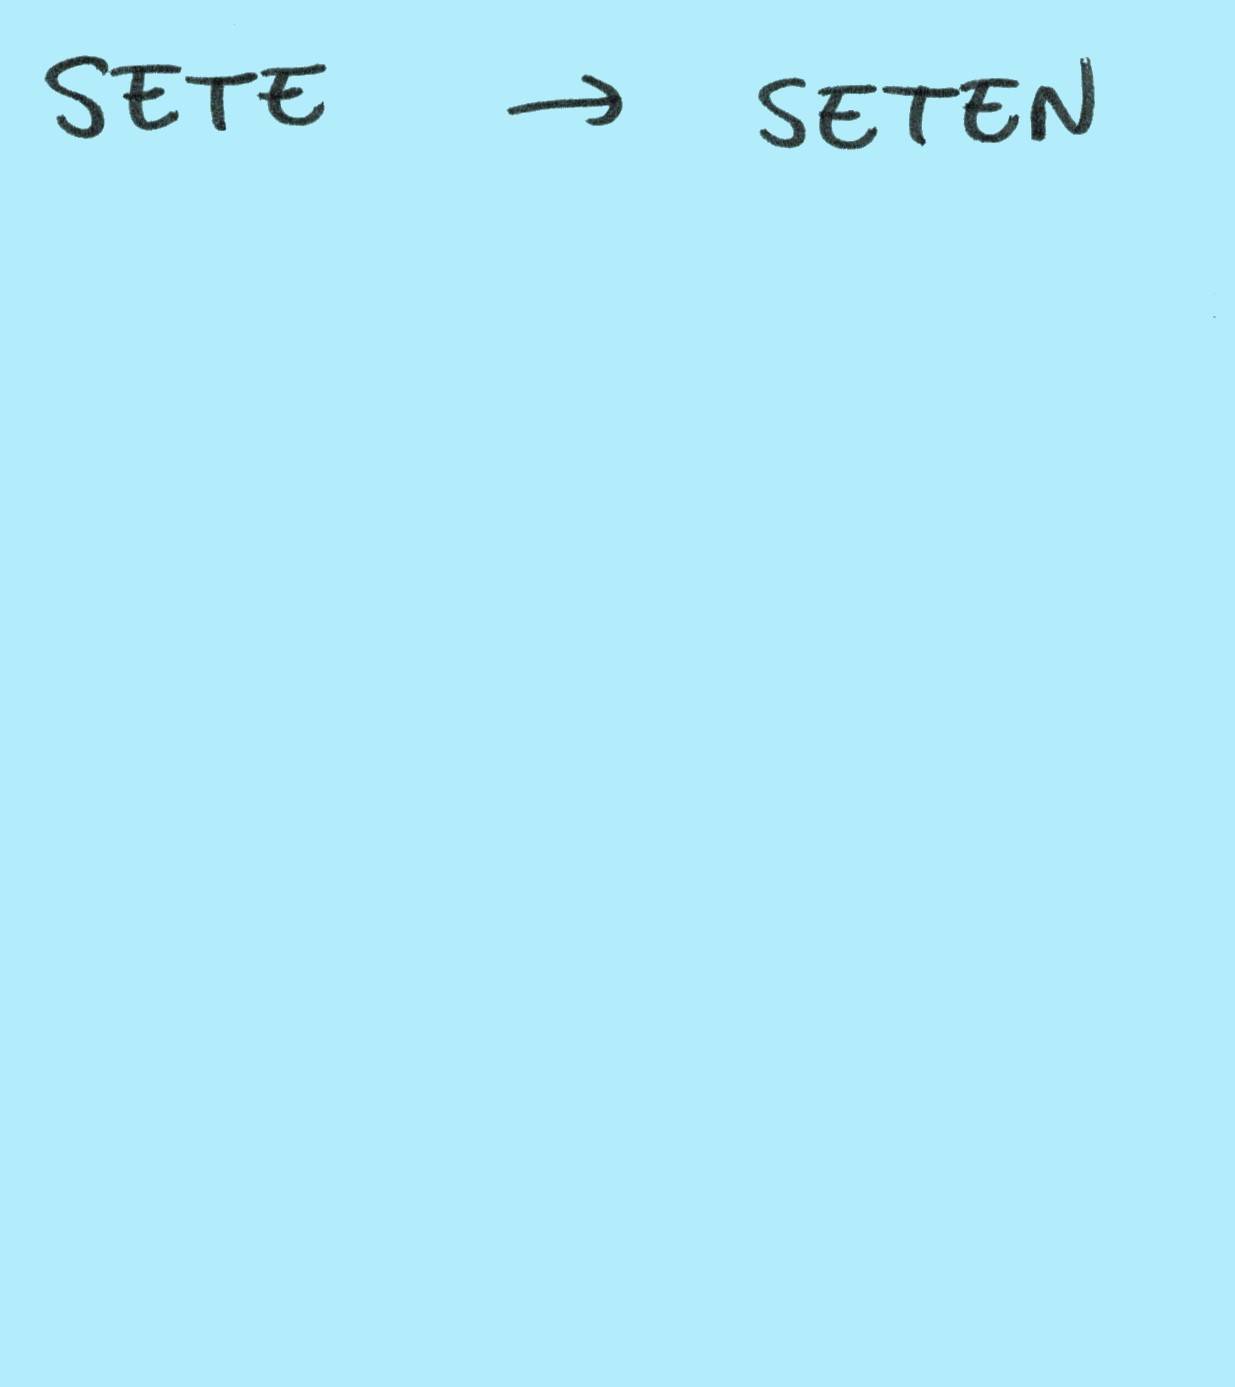 SETE → SETEN